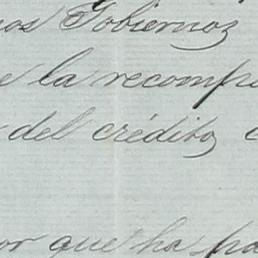 nos Gobiernos
e la recomp
del crédito, c
or que ha pa